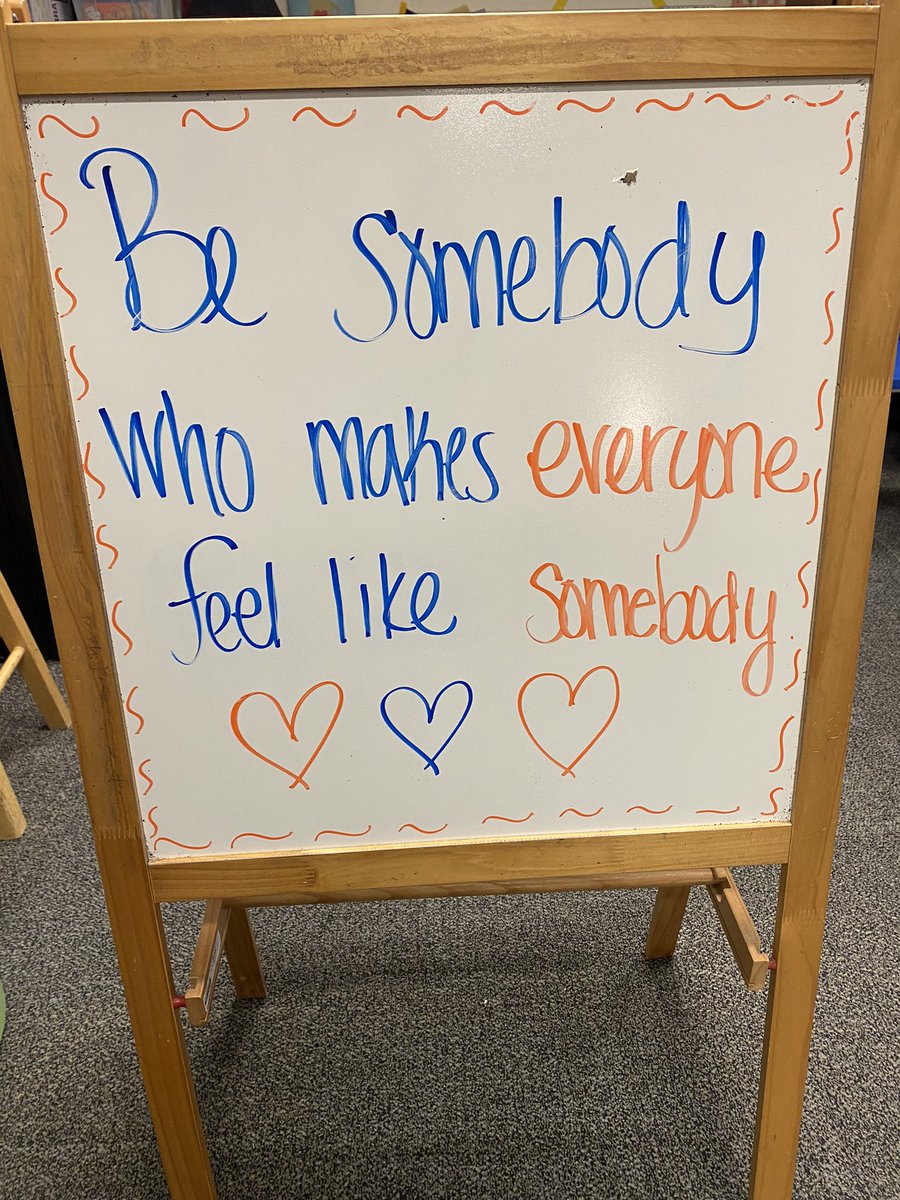 Be somebody
who makes everyone
feel like somebody.